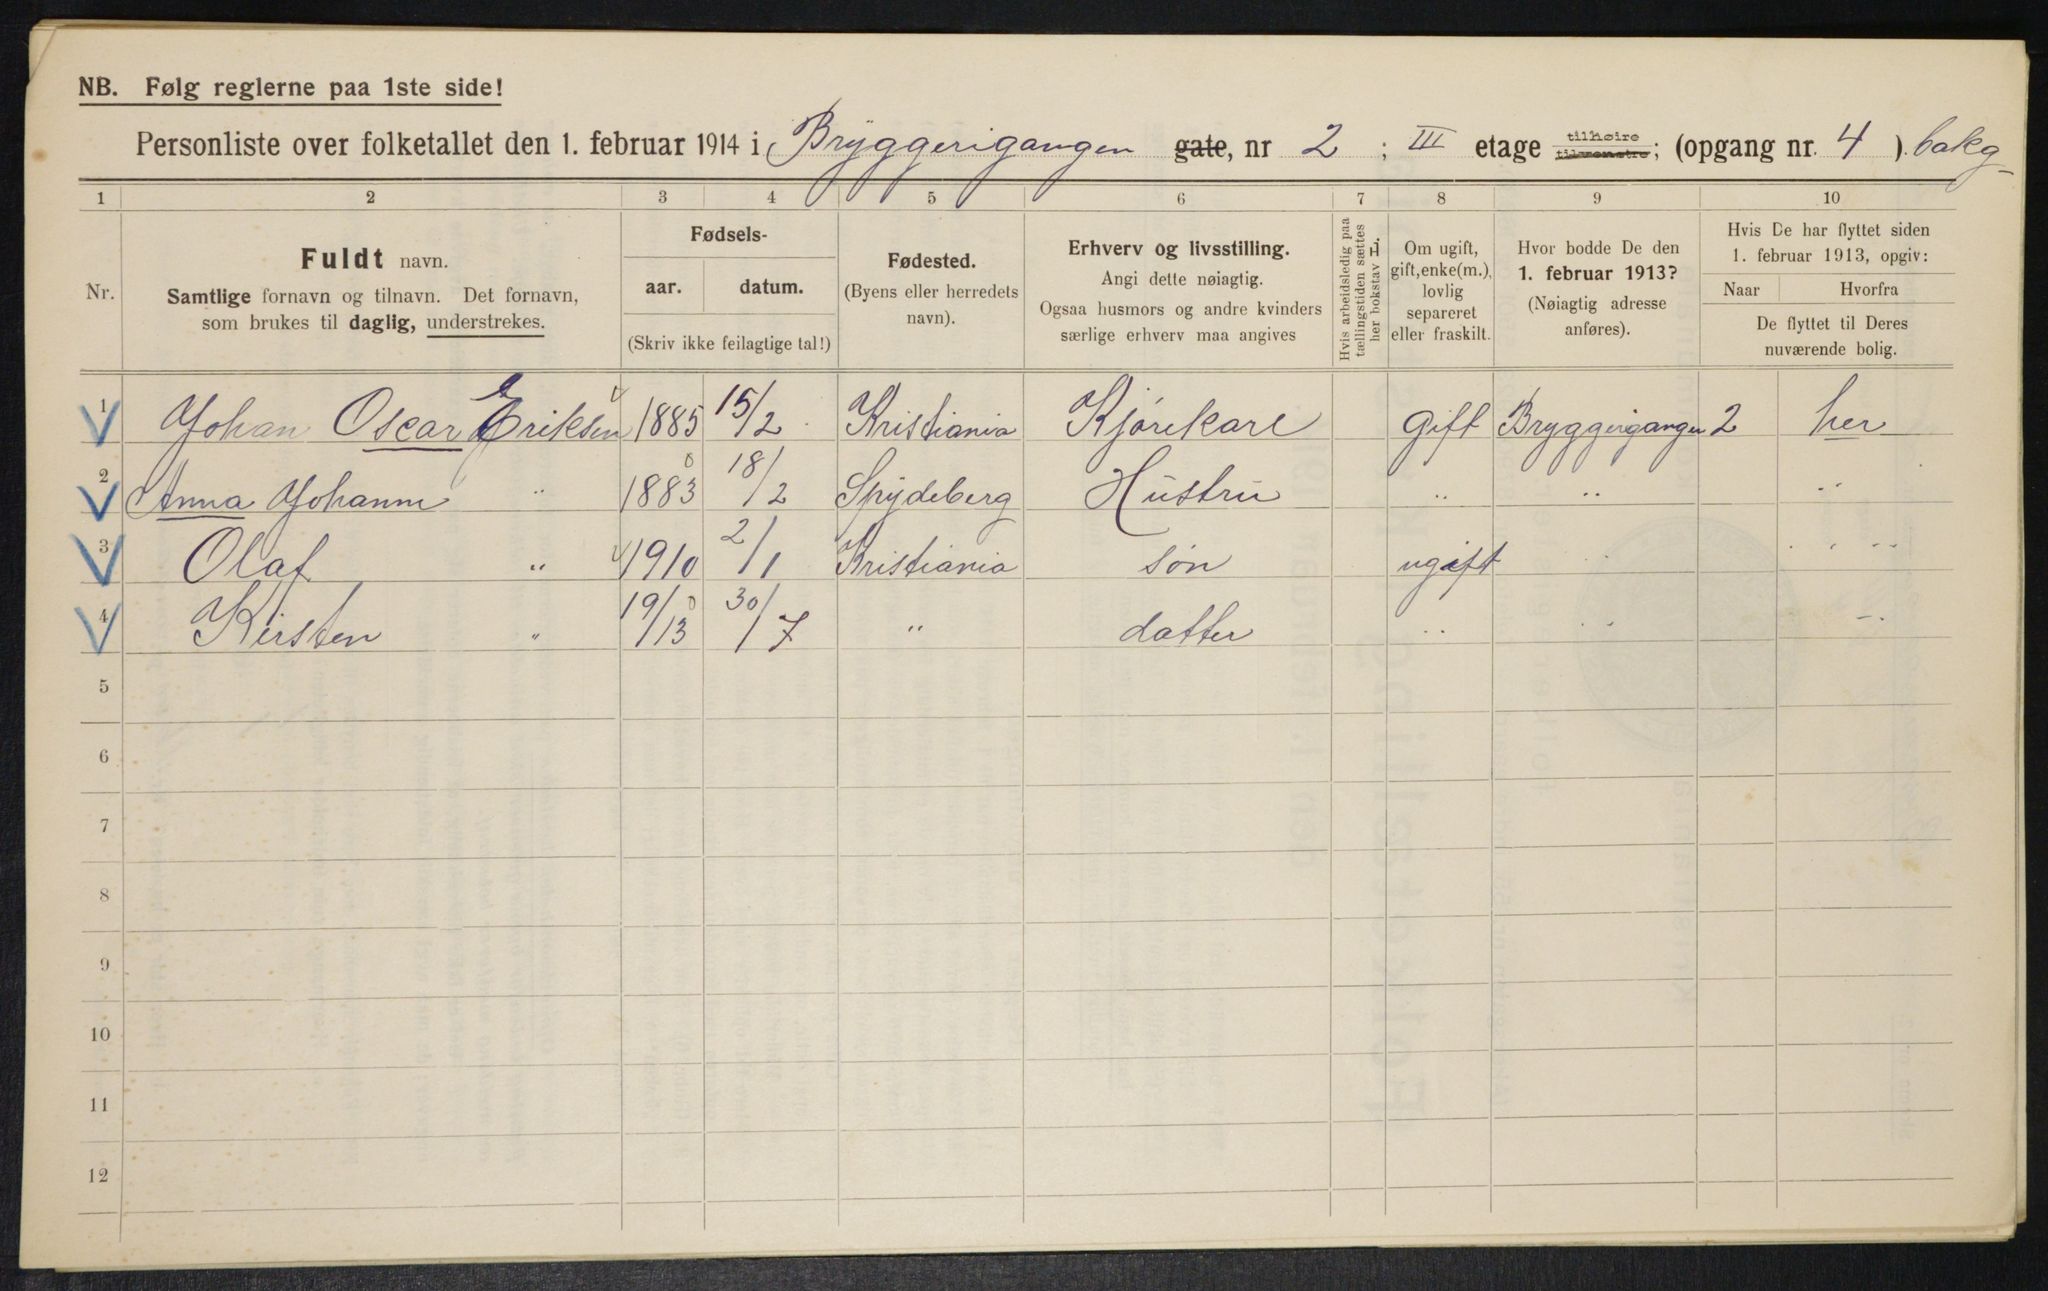 NB. Følg reglerne paa 1ste side!
Personliste over folketallet den 1. februar 1914 i Bryggerigangen gate, nr 2 ; III etage tilhøire tilvenstre; (opgang nr. 4 ) bakg
1 2 3 4 5 6 7 8 9 10
Nr.
Fuldt navn.
Samtlige fornavn og tilnavn. Det fornavn,
som brukes til daglig, understrekes.
Fødsels-
aar. datum.
(Skriv ikke feilagtige tal!)
Fødested.
(Byens eller herredets
navn).
Erhverv og livsstilling.
Angi dette nøiagtig.
Ogsaa husmors og andre kvinders
særlige erhverv maa angives
Hvis arbeidsledig paa
tællingstiden sættes
her bokstav i.
Om ugift,
gift, enke(m.),
lovlig
separeret
eller fraskilt.
Hvor bodde De den
1. februar 1913?
(Nøiagtig adresse
anføres).
Hvis De har flyttet siden
1. februar 1913, opgiv:
Naar Hvorfra
De flyttet til Deres
nuværende bolig.
1 Johan Oscar Eriksen 1885 15/2 Kristiania Kjørekarl gift Bryggerigangen 2 her
2 Anna Johanne " 1883 18/2 Spydeberg Hustru " " "
3 Olaf " 1910 2/1 Kristiania søn ugift " "
4 Kirsten " 19/13 30/7 " datter " " "
5
6
7
8
9
10
11
12